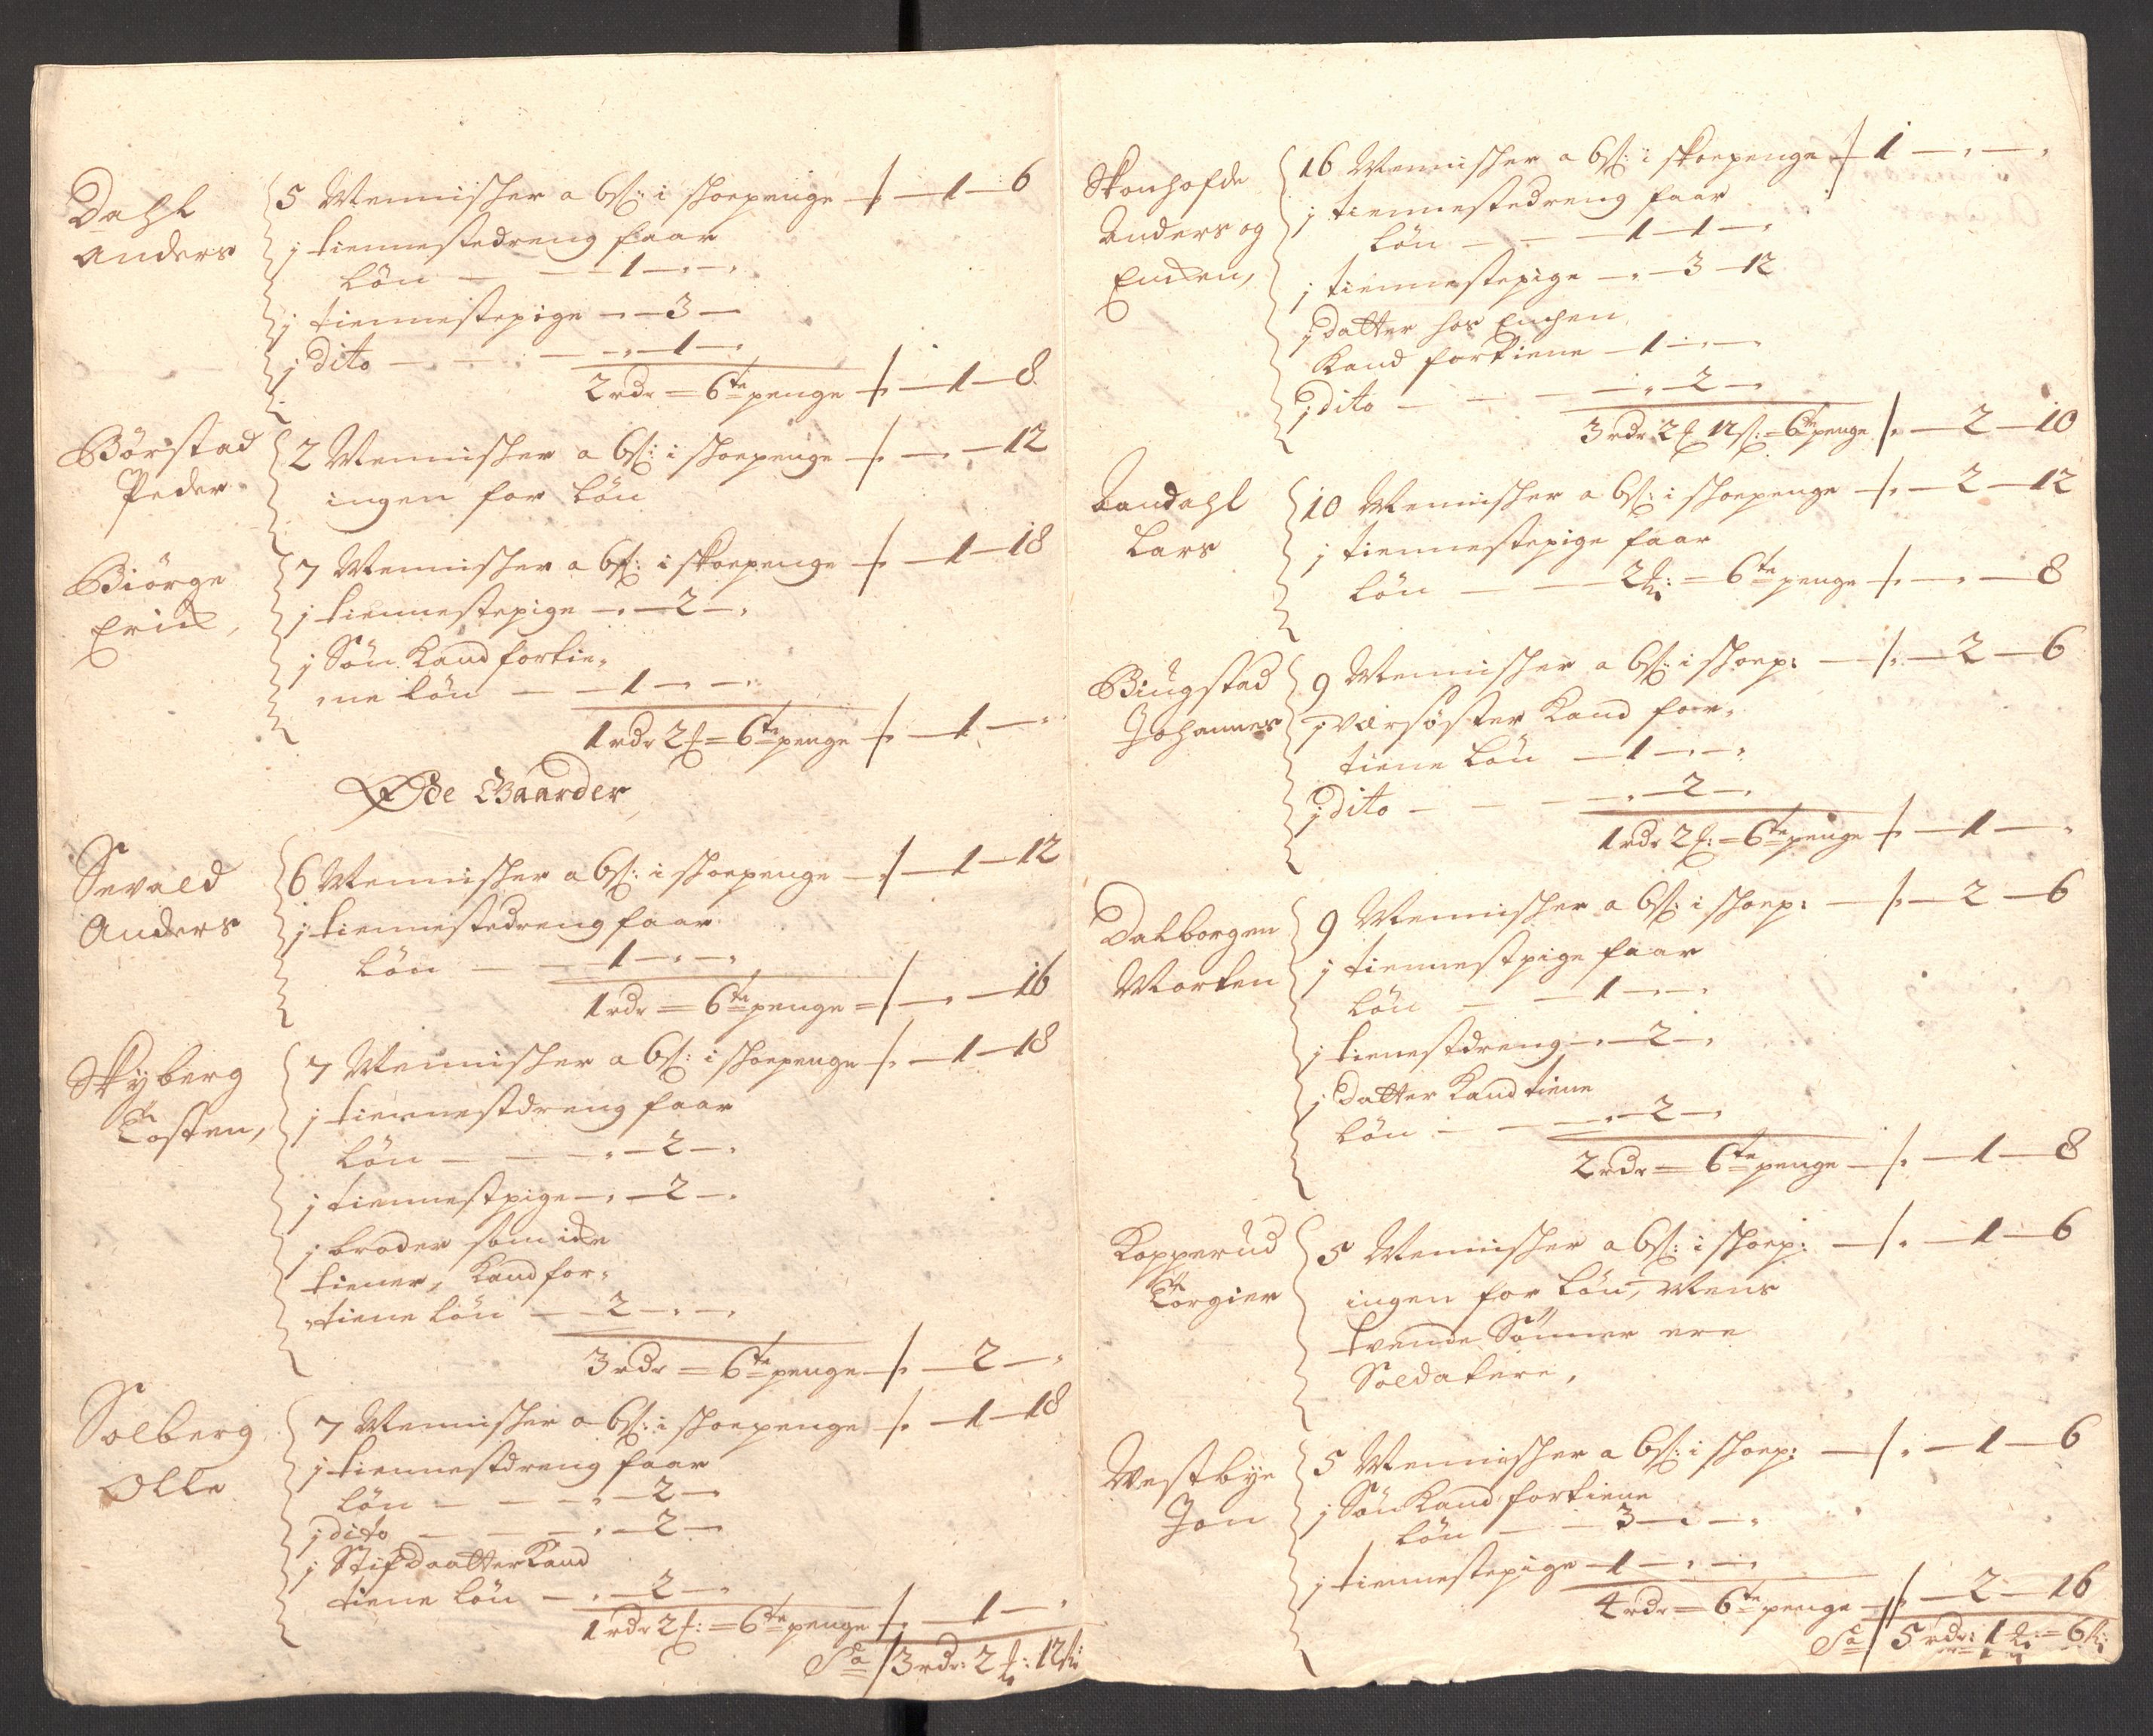 Dahl
Anders
5 Mennischer a 6s: i schoepenge — /. — 1 — 6
j tiennestedreng faar
Løn — — 1 — „ — „
j tiennestepige — „ — 3 —
j Dito — — — „ — 1 — „
2 rdr = 6te penge — /. — 1 — 8
Børstad
Peder
2 Mennischer a 6s: i schoepenge — /. — „ — 12
ingen for Løn
Biørge
Erich,
7 Mennischer a 6s: i skoepenge — /. — 1 — 18
j tiennestepige — „ — 2 — „
j Søn kand fortie„
„ne Løn — — 1 — „ — „
1 rdr 2 s = 6te penge — /. — 1 — „
Øde Gaarder,
Sevald
Anders
6 Mennischer a 6s: i schoepenge — / — 1 — 12
j tiennestedreng faar
Løn — — 1 — „ — „
1 rdr = 6te penge = / — „ — 16
Skyberg
Tosten,
7 Mennischer a 6s: i schoepenge — /. — 1 — 18
j tiennestdreng faar
Løn — — — „ — 2 — „
j tiennestpige — „ — 2 — „
j broder som icke
tiener, kand for„
„tiene Løn — 2 — „ — „
3 rdr = 6te penge — /. — 2 — „
Solberg
Olle
7 Mennischer a 6s: i schoepenge /. — 1 — 18
j tiennestdreng faar
Løn — — — „ — 2 —
j dito — — — „ — 2 —
j Stifdaatter Kand
tiene Løn — „ — 2 — „
1 rdr 2 s: = 6te penge /. — 1 — „
Sa / 3 rdr: 2 : 12 s:
Skonhofde
Anders og
Enchen,
16 Mennischer a 6s: i skoepenge / 1 — „ — „
j tiennestedreng faar
Løn — — 1 — 1 — „
j tiennestepige — „ — 3 — 12
j datter hos Enchen
Kand fortiene — 1 — „ — „
j dito — — — „ — 2 — „
3 rdr 2 s 12 s: = 6te penge /. — 2 — 10
Aandahl
Lars
10 Mennischer a 6s: i schoepenge — /. — 2 — 12
j tiennestepige faar
Løn — — 2 : = 6te penge — /. — „ — 8
Biugstad
Johannes
9 Mennischer a 6s: i schoep: — /. — 2 — 6
j Værsøster Kand for„
tiene Løn — 1 — „ — „
j dito — — — „ — 2 — „
1 rdr 2 s: = 6te penge — /. — 1 — „
Dalborgen
Morten
9 Mennischer a 6s: i schoep: — /. — 2 — 6
j tiennestpige faar
Løn — — 1 — „ — „
j tienestdreng — „ — 2 — „
j datter Kand tiene
Løn — — — „ — 2 — „
2 rdr = 6te penge — /. — 1 — 8
Kopperud
Torgier
5 Mennischer a 6s: i schoep: — /. — 1 — 6
ingen for Løn, Mens
tvende Sønner ere
Soldatere,
Westbye
Jon
5 Mennischer a 6s: i schoep: — /. — 1 — 6
j Søn Kand fortiene
Løn — — 3 — „ — „
j tiennestepige — 1 — „ — „
4 rdr = 6te penge — /. — 2 — 16
Sa / 5 rdr: 1 : = 6 s: